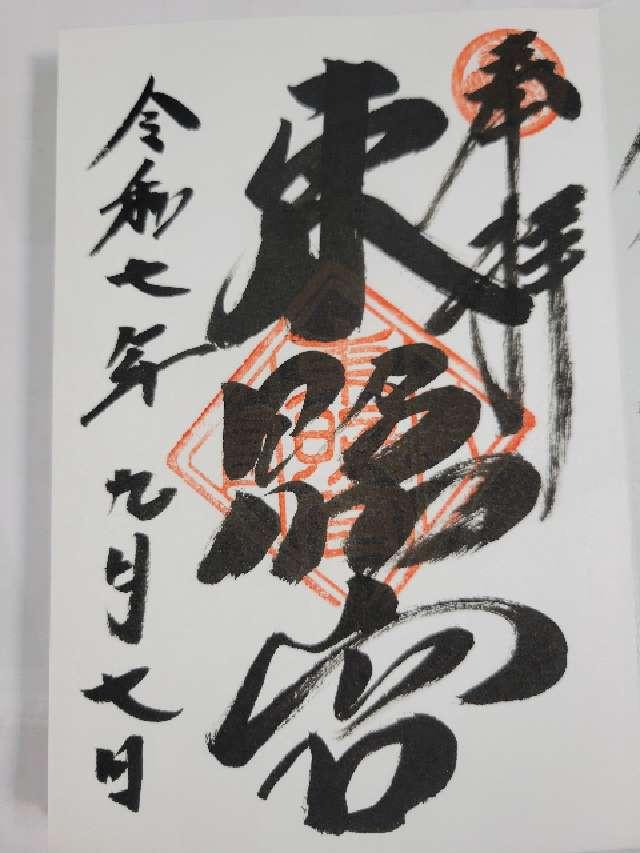 奉拝
東照宮
令和七年九月七日